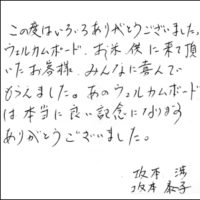 この度はいろいろありがとうございました。
ウェルカムボード、お米、供に来て頂
いたお客様、みんなに喜んで
もらえました。あのウェルカムボード
は本当に良い記念になります
ありがとうございました。
坂本 浩
坂本 泰子